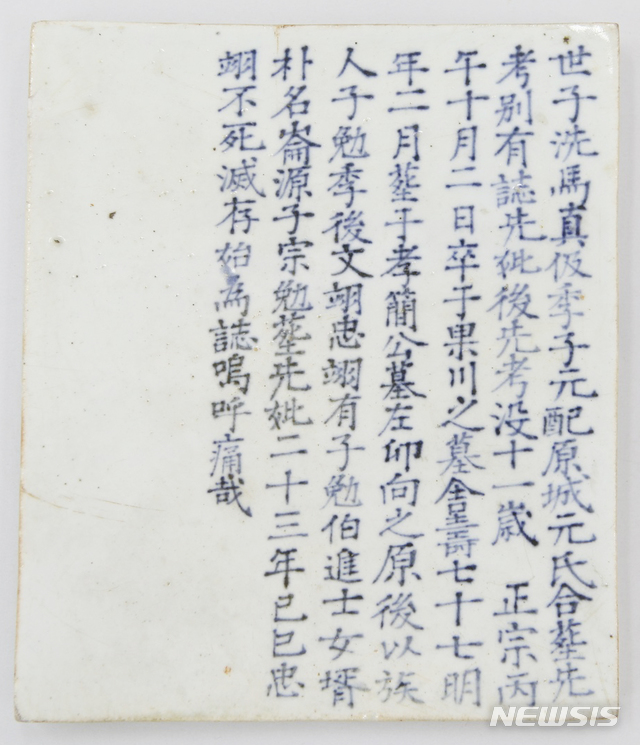 世子洗馬真伋季子元配原城元氏合塟先
考別有誌先妣後先考没十一歲 正宗丙
午十月二日卒于果川之墓舍壽七十七明
年二月塟于孝簡公墓左卯向之原後以族
人子勉季後文翊忠翊有子勉伯進士女壻
朴名崙源子宗勉塟先妣二十三年己巳忠
翊不死滅存始爲誌嗚呼痛哉
NEWSIS